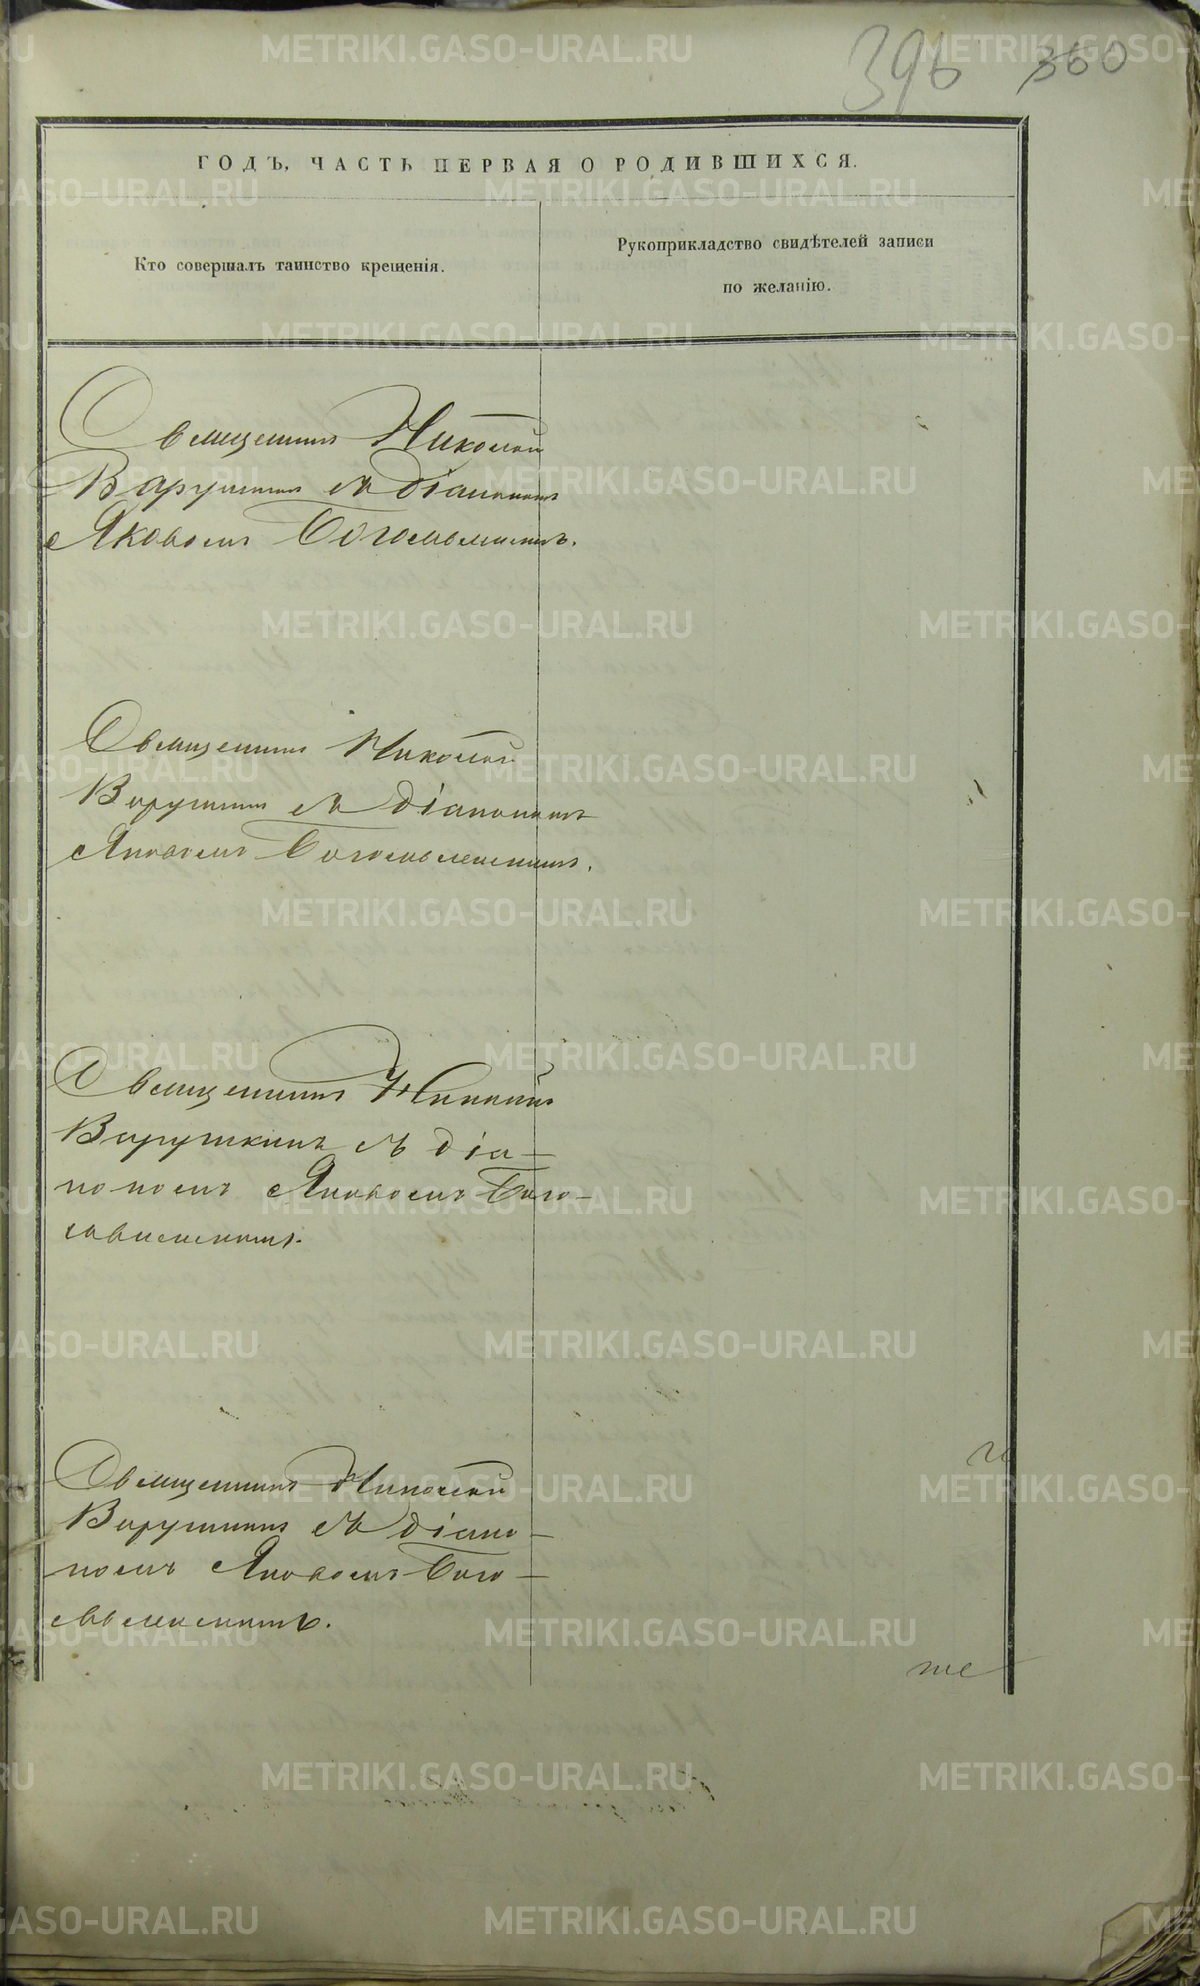 396 360
ГОДЪ, ЧАСТЬ ПЕРВАЯ О РОДИВШИХСЯ.
Кто совершалъ таинство крещенія.
Рукоприкладство свидѣтелей записи
по желанію.
Священникъ Николай
Варушкинъ съ Діакономъ
Яковомъ Богоявленскимъ.
Священникъ Николай
Варушкинъ съ Діакономъ
Яковомъ Богоявленскимъ.
Священникъ Николай
Варушкинъ съ Діа-
кономъ Яковомъ Бого-
явленскимъ.
Священникъ Николай
Варушкинъ съ Діако-
номъ Яковомъ Бого-
явленскимъ.
же
METRIKI.GASO-URAL.RU